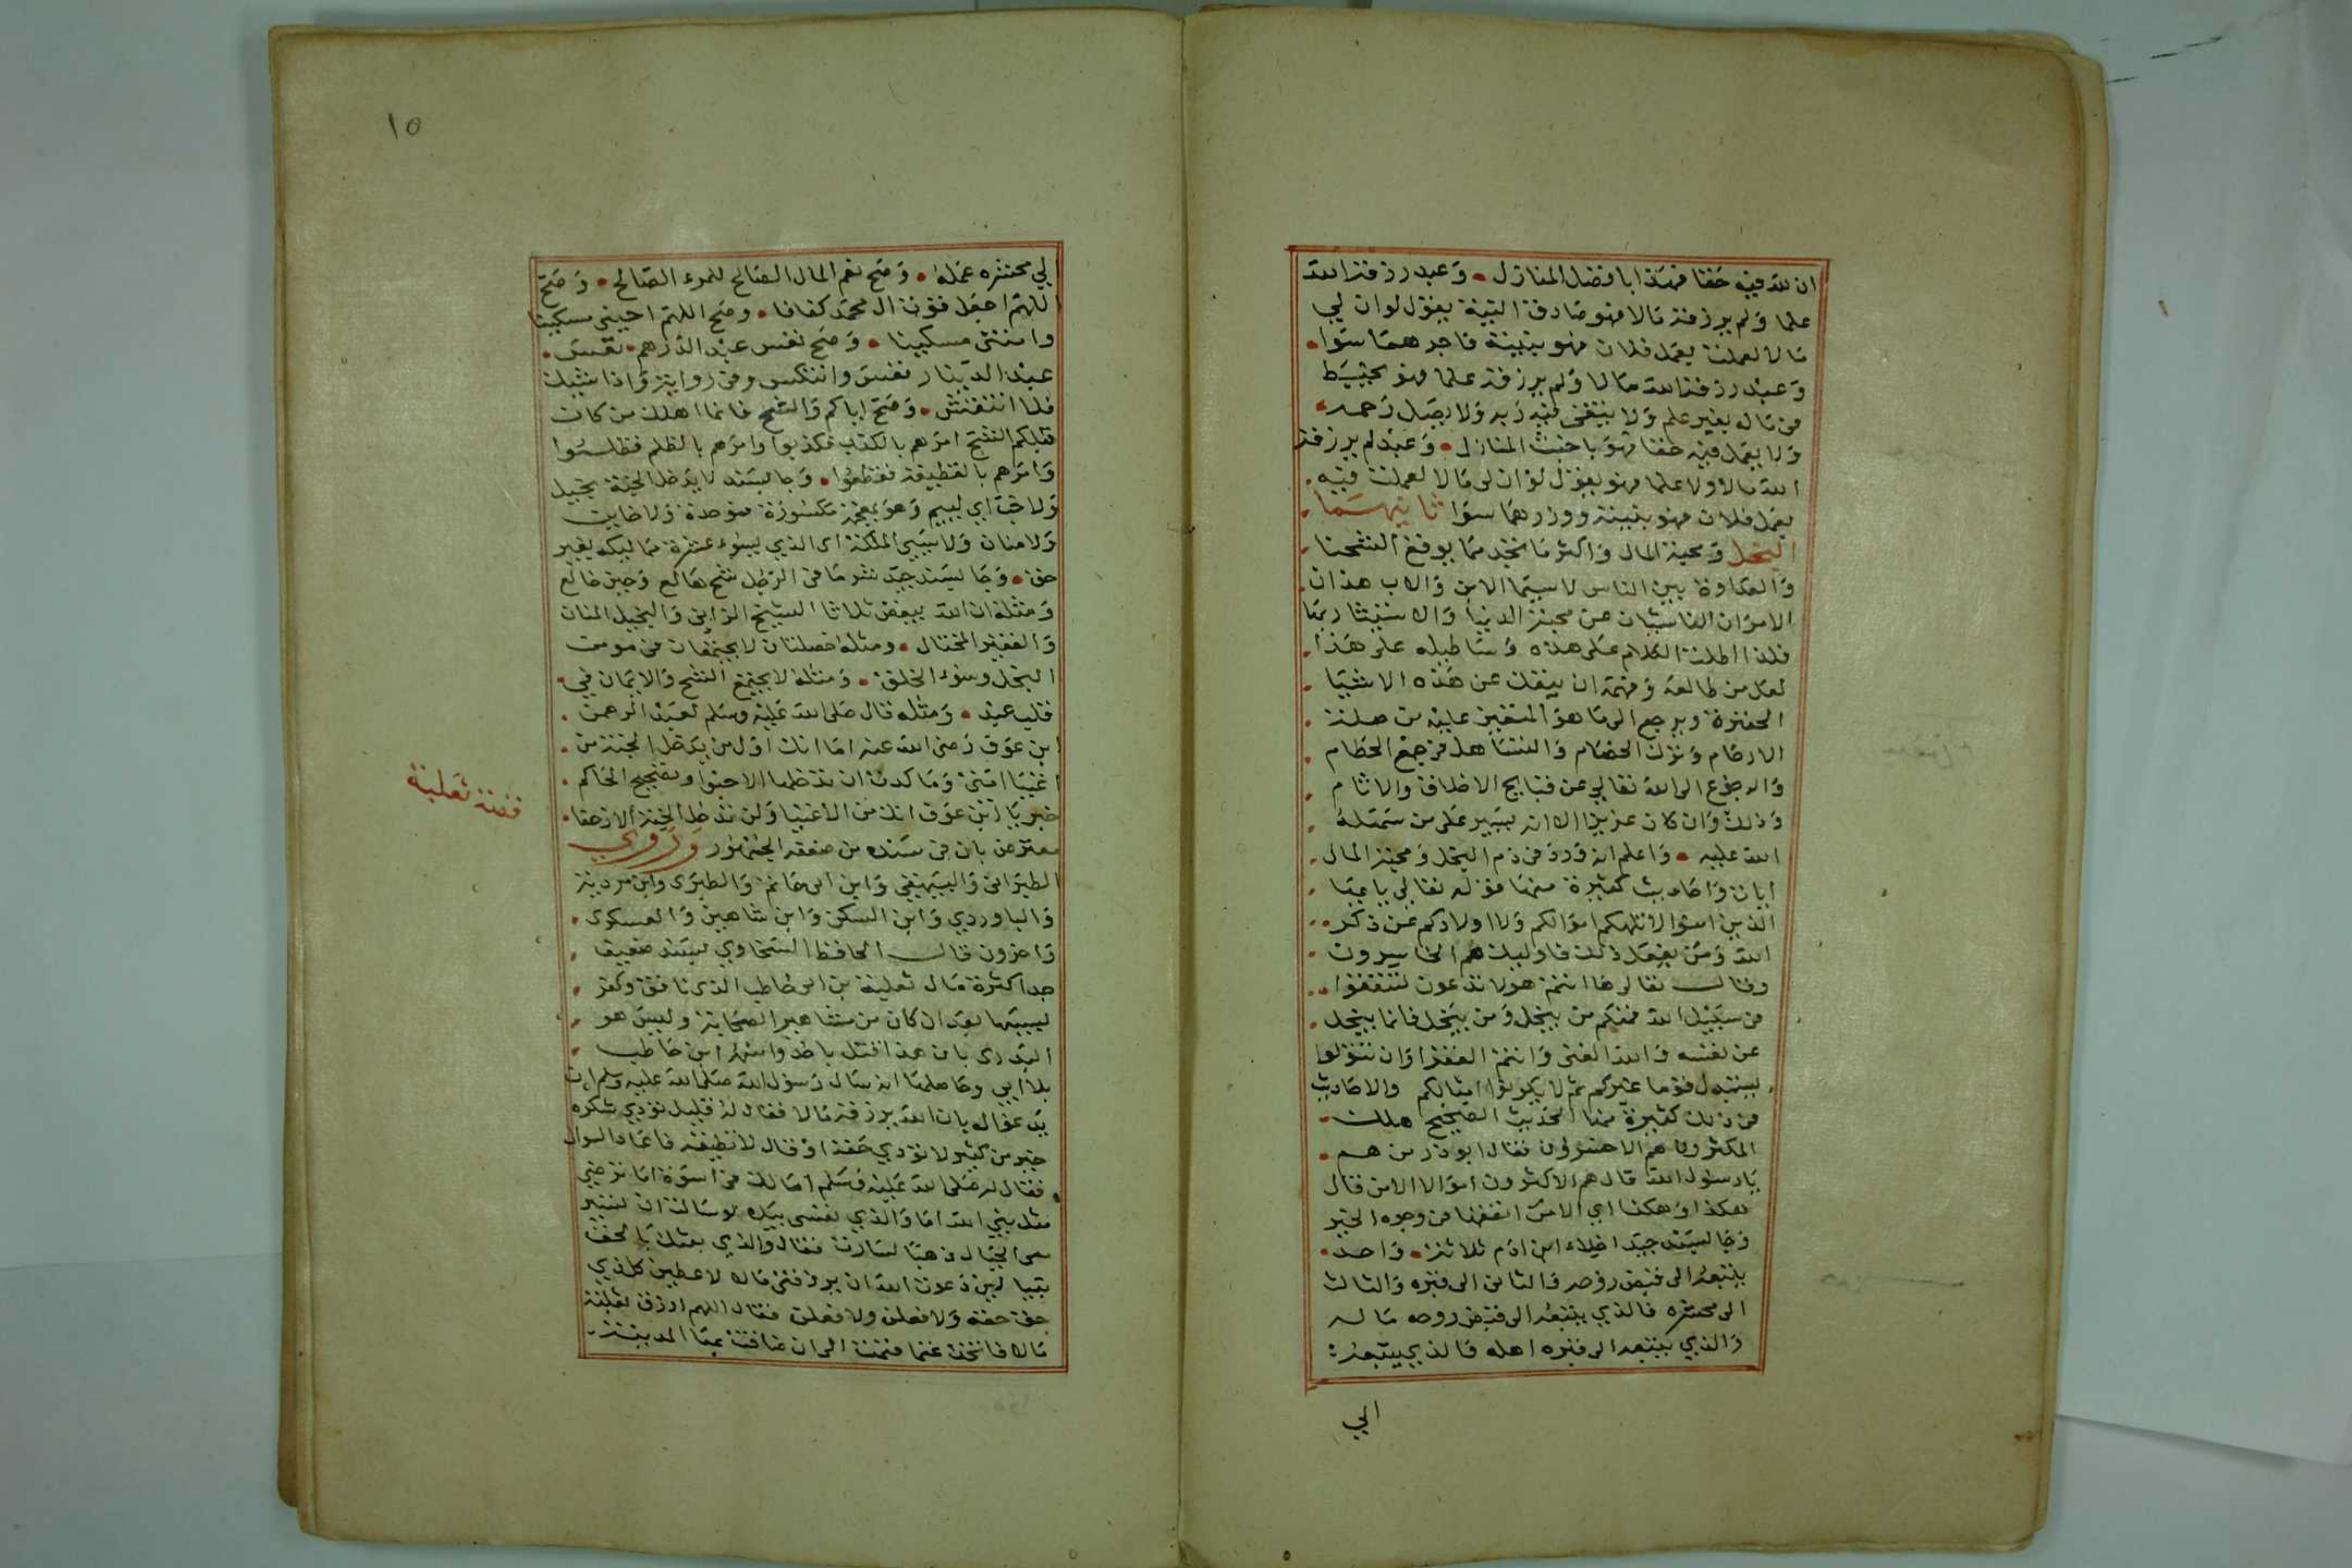 ان لله فيه حقا فهذا بافضل المنازل • وعبد رزقه الله
علما ولم يرزقه مالا فهو صادق النية يقول لو ان لي
مالا لعملت بعمل فلان فهو بنيته فاجرهما سوا •
وعبد رزقه الله مالا ولم يرزقه علما فهو يخبط
في ماله بغير علم ولا يتقي فيه ربه ولا يصل رحمه
ولا يعمل فيه حقا فهو باخبث المنازل • وعبد لم يرزقه
الله مالا ولا علما فهو يقول لو ان لي مالا لعملت فيه
بعمل فلان فهو بنيته ووزرهما سوا ثانيهما
البخل ومحبة المال واكثر ما نجد مما يوقع الشحنا
والعداوة بين الناس لا سيما الابن والاب هذان
الامران الناشئان عن محبة الدنيا والاستيثار بها
فلذا اطلت الكلام على هذه وساطيله على هذا
لعل من طالعه وفهمه ان ينفك عن هذه الاشيا
الحقيرة ويرجع الى ما هو المتعين عليه من صلة
الارحام وترك الخصام والتساهل في جمع الحطام
والرجوع الى الله تعالى عن قبايح الاخلاق والاثام
وذلك وان كان عزيزا الا انه يسير على من سهله
الله عليه • واعلم انه ورد في ذم البخل ومحبة المال
ايات واحاديث كثيرة منها قوله تعالى يا ايها
الذين امنوا لا تلهكم اموالكم ولا اولادكم عن ذكر
الله ومن يفعل ذلك فاوليك هم الخاسرون
وقال تعالى ها انتم هولا تدعون لتنفقوا
في سبيل الله فمنكم من يبخل ومن يبخل فانما يبخل
عن نفسه والله الغني وانتم الفقرا وان تتولوا
يستبدل قوما غيركم ثم لا يكونوا امثالكم والاحاديث
في ذلك كثيرة منها الحديث الصحيح هلك
المكثرون هم الاخسرون فقال ابو ذر من هم
يا رسول الله قال هم الاكثرون اموالا الا من قال
هكذا وهكذا اي الا من انفقها في وجوه الخير
وجا بسند جيد اخلاء ابن ادم ثلاثة • واحد
يتبعه الى قبض روحه والثاني الى قبره والثالث
الى محشره فالذي يتبعه الى قبض روحه ماله
والذي يتبعه الى قبره اهله والذي يتبعه
الي
١٥
الي محشره عمله • وصح نعم المال الصالح للمرء الصالح • وصح
اللهم اجعل قوت ال محمد كفافا • وصح اللهم احيني مسكينا
وامتني مسكينا • وصح تعس عبد الدرهم • تعس
عبد الدينار تعس وانتكس وفي رواية واذا شيك
فلا انتقش • وصح اياكم والشح فانما اهلك من كان
قبلكم الشح امرهم بالكذب فكذبوا وامرهم بالظلم فظلموا
وامرهم بالقطيعة فقطعوا • وجا بسند لا يدخل الجنة بخيل
ولا خب اي لييم وهو بمعجمة مكسورة فموحدة ولا خاين
ولا منان ولا سيي الملكة اي الذي يسوء عشرة مماليكه بغير
حق • وجا بسند جيد شر ما في الرجل شح هالع وجبن خالع
ومثله ان الله يبغض ثلاثا الشيخ الزاني والبخيل المنان
والفقير المختال • ومثله خصلتان لا يجتمعان في مومن
البخل وسوء الخلق • ومثله لا يجتمع الشح والايمان في
قلب عبد • ومثله قال صلى الله عليه وسلم لعبد الرحمن
ابن عوف رضي الله عنه اما انك اول من يدخل الجنة من
اغنيا امتي وما كدت ان تدخلها الا حبوا وتصحيح الحاكم
خبر يا ابن عوف انك من الاغنيا ولن تدخل الجنة الا زحفا
معترض بان في سنده من ضعفه الجمهور وروي
الطبراني والبيهقي وابن ابي حاتم والطبري وابن مردية
والباوردي وابن السكن وابن شاهين والعسكري
واخرون قال الحافظ السخاوي بسند ضعيف
جدا كثرة مال ثعلبة بن ابي حاطب الذي نافق وكفر
بسببها بعد ان كان من مشاهير الصحابة وليس هو
البدري بان هذا قتل باحد واسمه ابن حاطب
بلا ابي وحاصلها انه سال رسول الله صلى الله عليه وسلم ان
يدعو له بان الله يرزقه مالا فقال له قليل تؤدي شكره
خير من كثير لا تؤدي حقه او قال لا تطيقه فاعاد السوال
فقال له صلى الله عليه وسلم اما لك في اسوة اما ترضى
مثل نبي الله اما والذي نفسي بيده لو سالت ان تسير
معي الجبال ذهبا لسارت فقال والذي بعثك بالحق
نبيا لين دعوت الله ان يرزقني مالا لاعطين كل ذي
حق حقه ولافعلن ولافعلن فقال اللهم ارزق ثعلبة
مالا فاتخذ غنما فنمت الى ان ضاقت بها المدينة
قصة ثعلبة